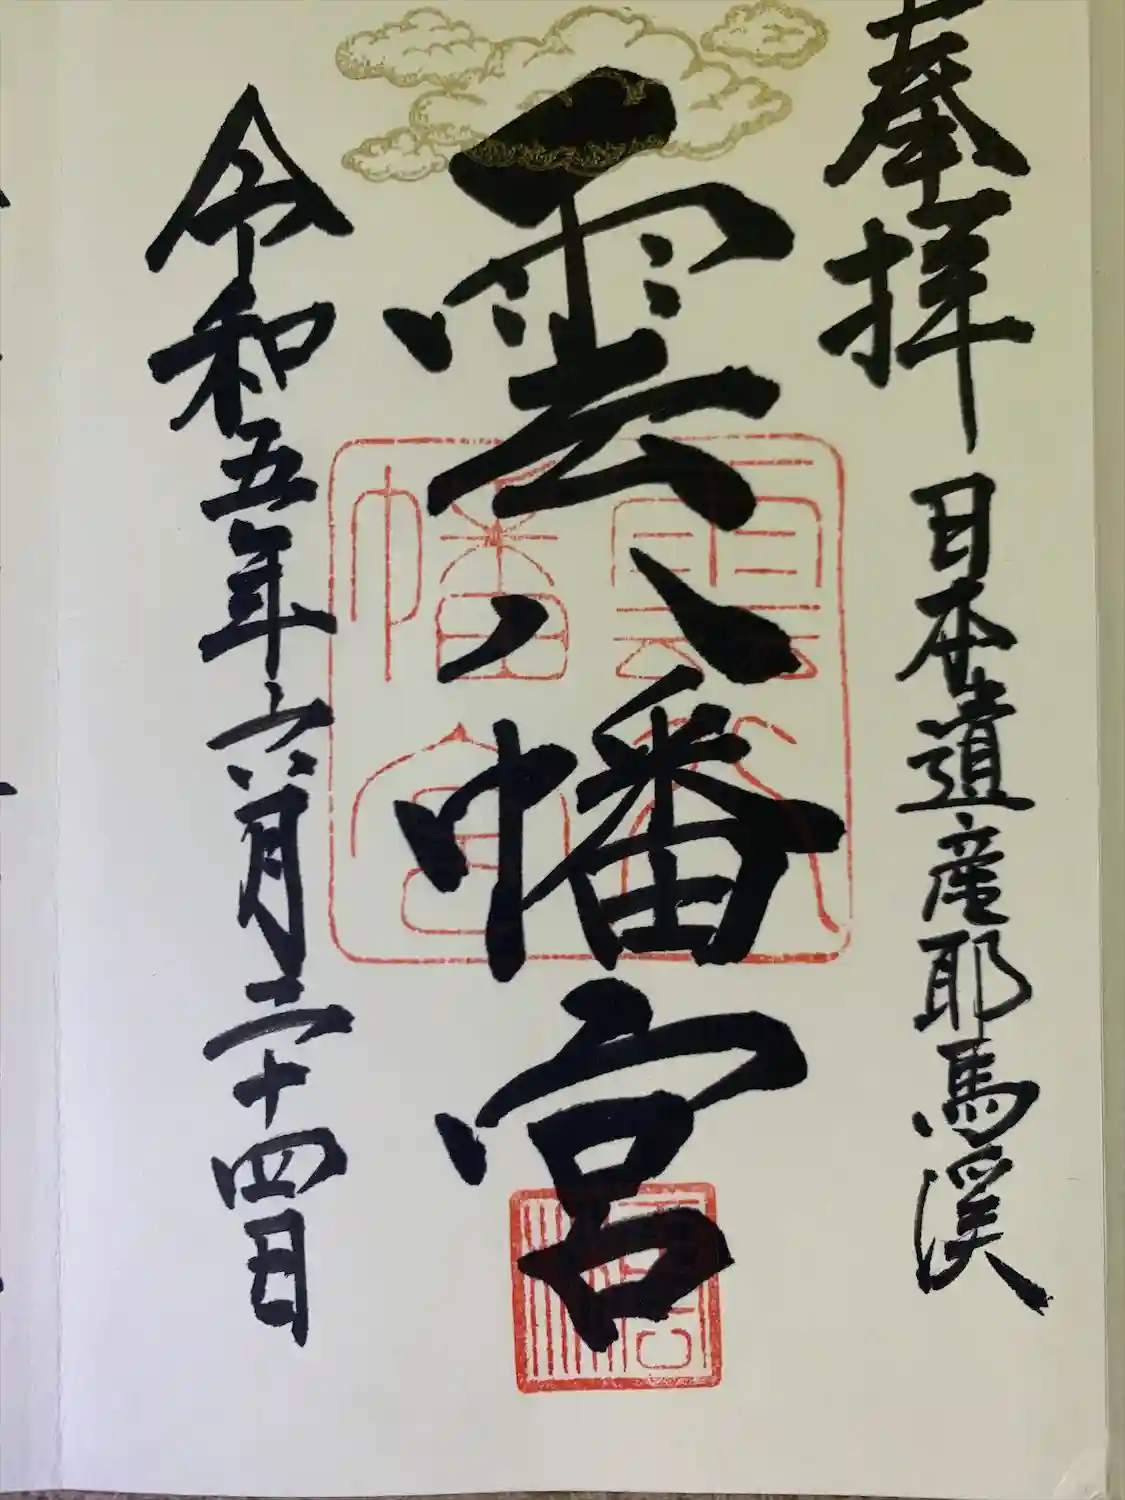 奉拝 日本遺産耶馬溪
雲八幡宮
令和五年六月二十四日
雲八幡宮